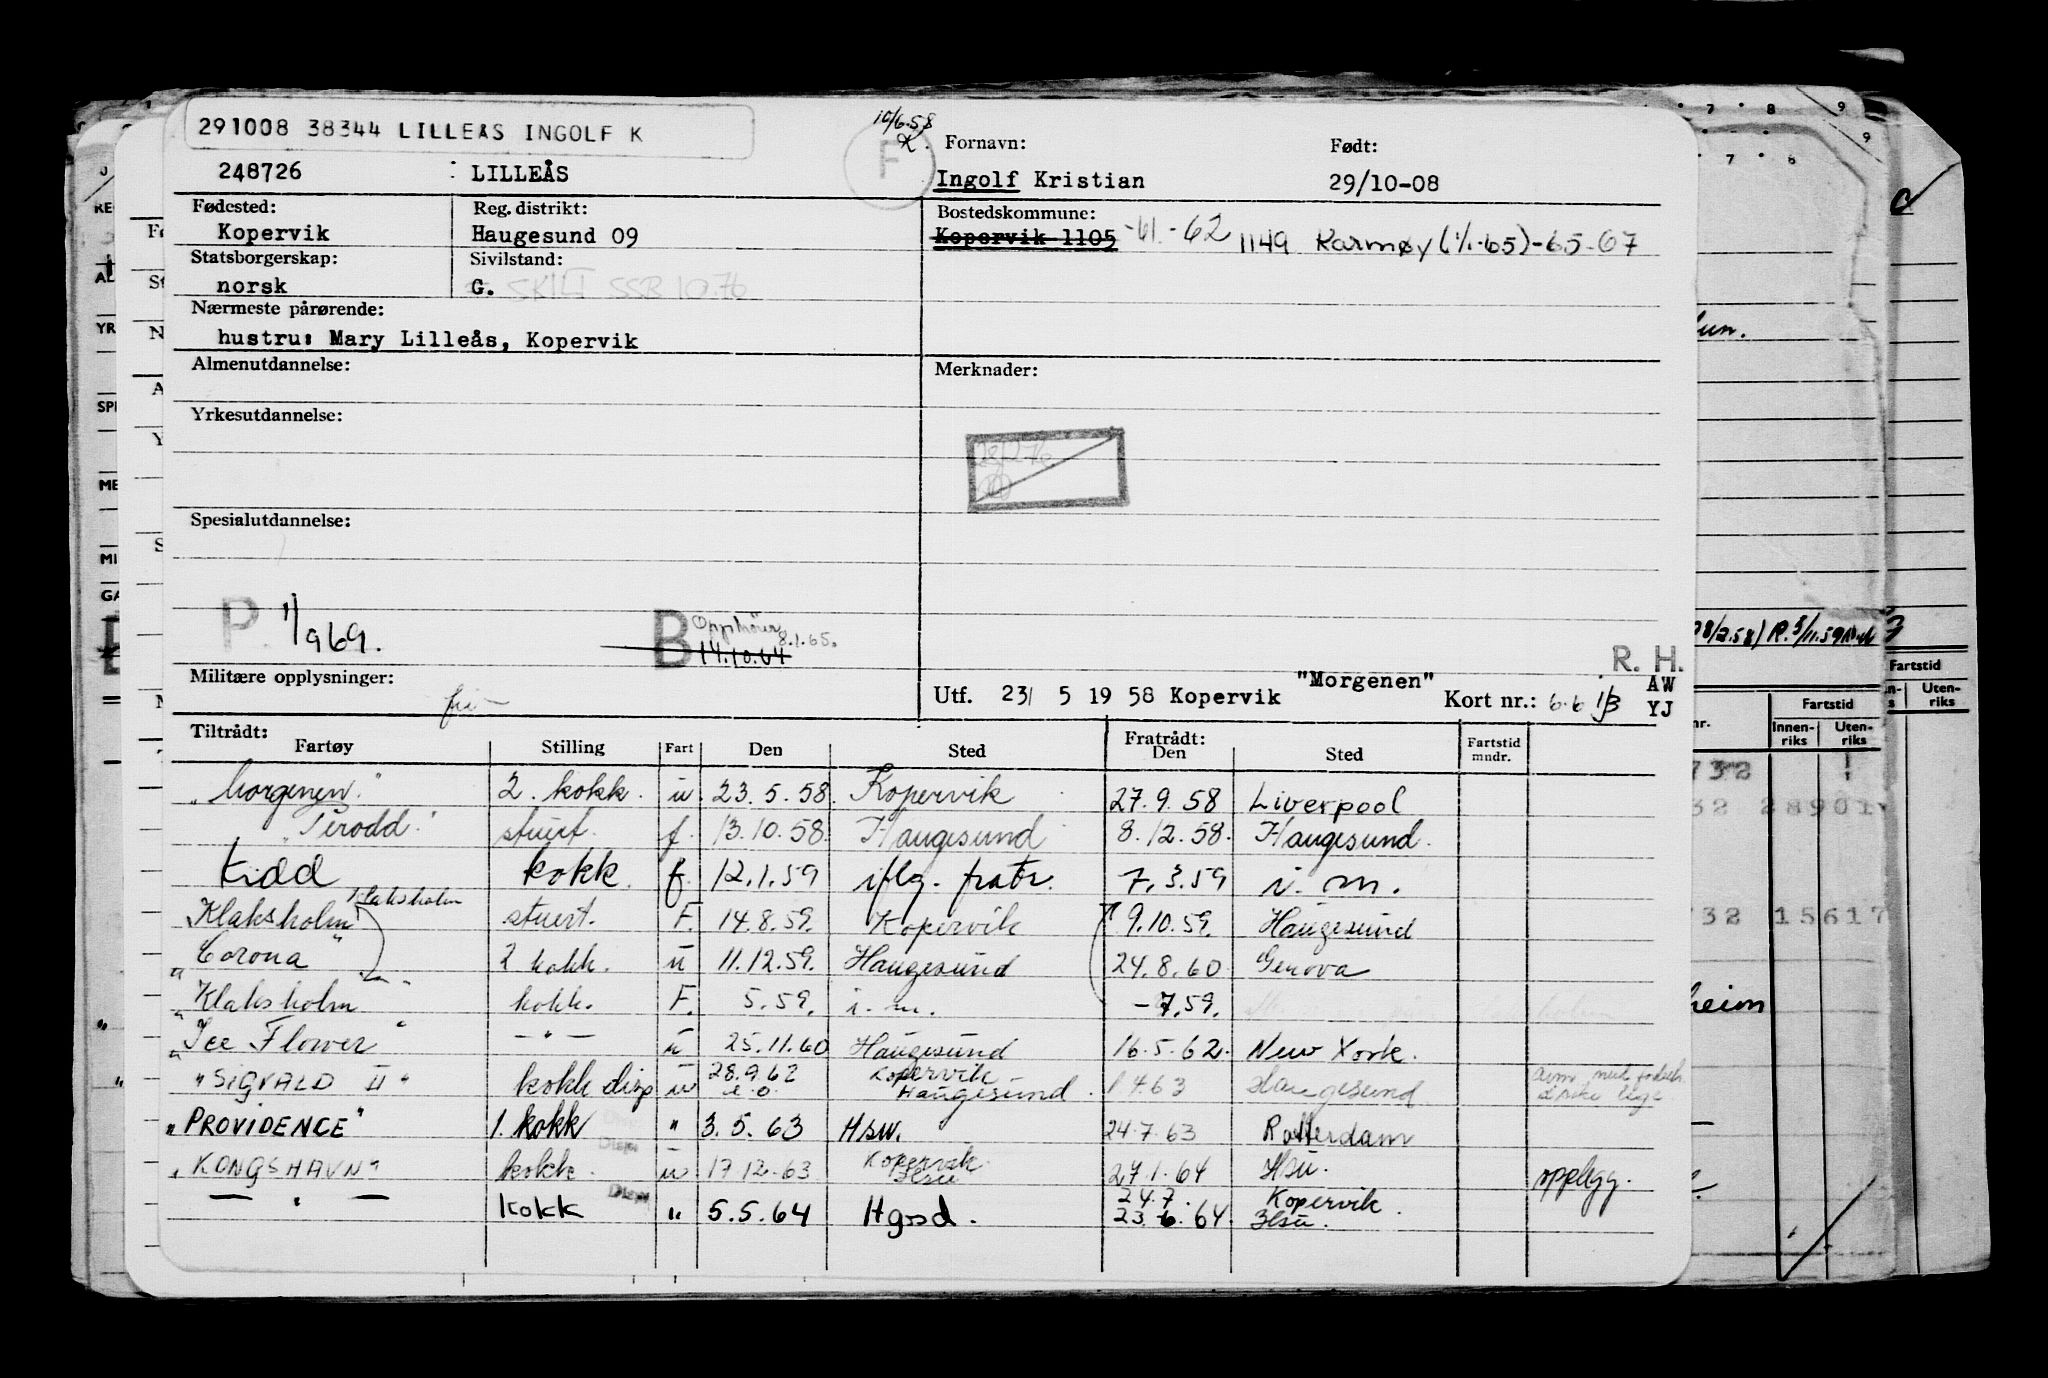 291008 38344 LILLEÅS INGOLF K
10/6.58
K.
F
Fornavn:
Født:
248726
LILLEÅS
Ingolf Kristian
29/10-08
Fødested:
Reg. distrikt:
Bostedskommune:
Kopervik
Haugesund 09
Kopervik 1105 -61.-62 1149 Karmøy (1/1-65)-65-67
Statsborgerskap:
Sivilstand:
norsk
G. SKILT SSB 10.76
Nærmeste pårørende:
hustru: Mary Lilleås, Kopervik
Almenutdannelse:
Merknader:
Yrkesutdannelse:
Spesialutdannelse:
P. 1/1 969.
B Opphører 8.1.65.
14.10.64
R. H.
Militære opplysninger:
Utf. 23/ 5 19 58 Kopervik "Morgenen" Kort nr.: 6.6
AW
YJ
Tiltrådt:
Fratrådt:
Fartøy Stilling Fart Den Sted Den Sted Fartstid mndr.
"Morgenen" 2. kokk. u 23.5.58. Kopervik 27.9.58 Liverpool
"Tirodd" stuert. f. 13.10.58. Haugesund 8.12.58. Haugesund.
Kidd kokk. f. 12.1.59 iflg. fratr. 7.3.59 i. m.
Klaksholm
Klaksholm stuert. F. 14.8.59. Kopervik 9.10.59. Haugesund
"Corona" 2 kokk. u 11.12.59. Haugesund 24.8.60. Genova
"Klaksholm" kokk. F. 5.59. i. m. -7.59.
"Ice Flower" — " — u 25.11.60 Haugesund 16.5.62. New York.
"SIGVALD II" kokk disp u 28.9.62 Kopervik Haugesund. 1.4.63 Haugesund
"PROVIDENCE" 1. kokk " 3.5.63 Hsu. 24.7.63 Rotterdam
"KONGSHAVN" kokk. Disp u 17.12.63 Kopervik Hsu 27.1.64 Hsu. opplegg.
— " — kokk Disp " 5.5.64 Hgsd. 24.7. Kopervik.
23.6.64 Hsu.
Fartstid
Innen-riks
Uten-riks
28901
732 15617